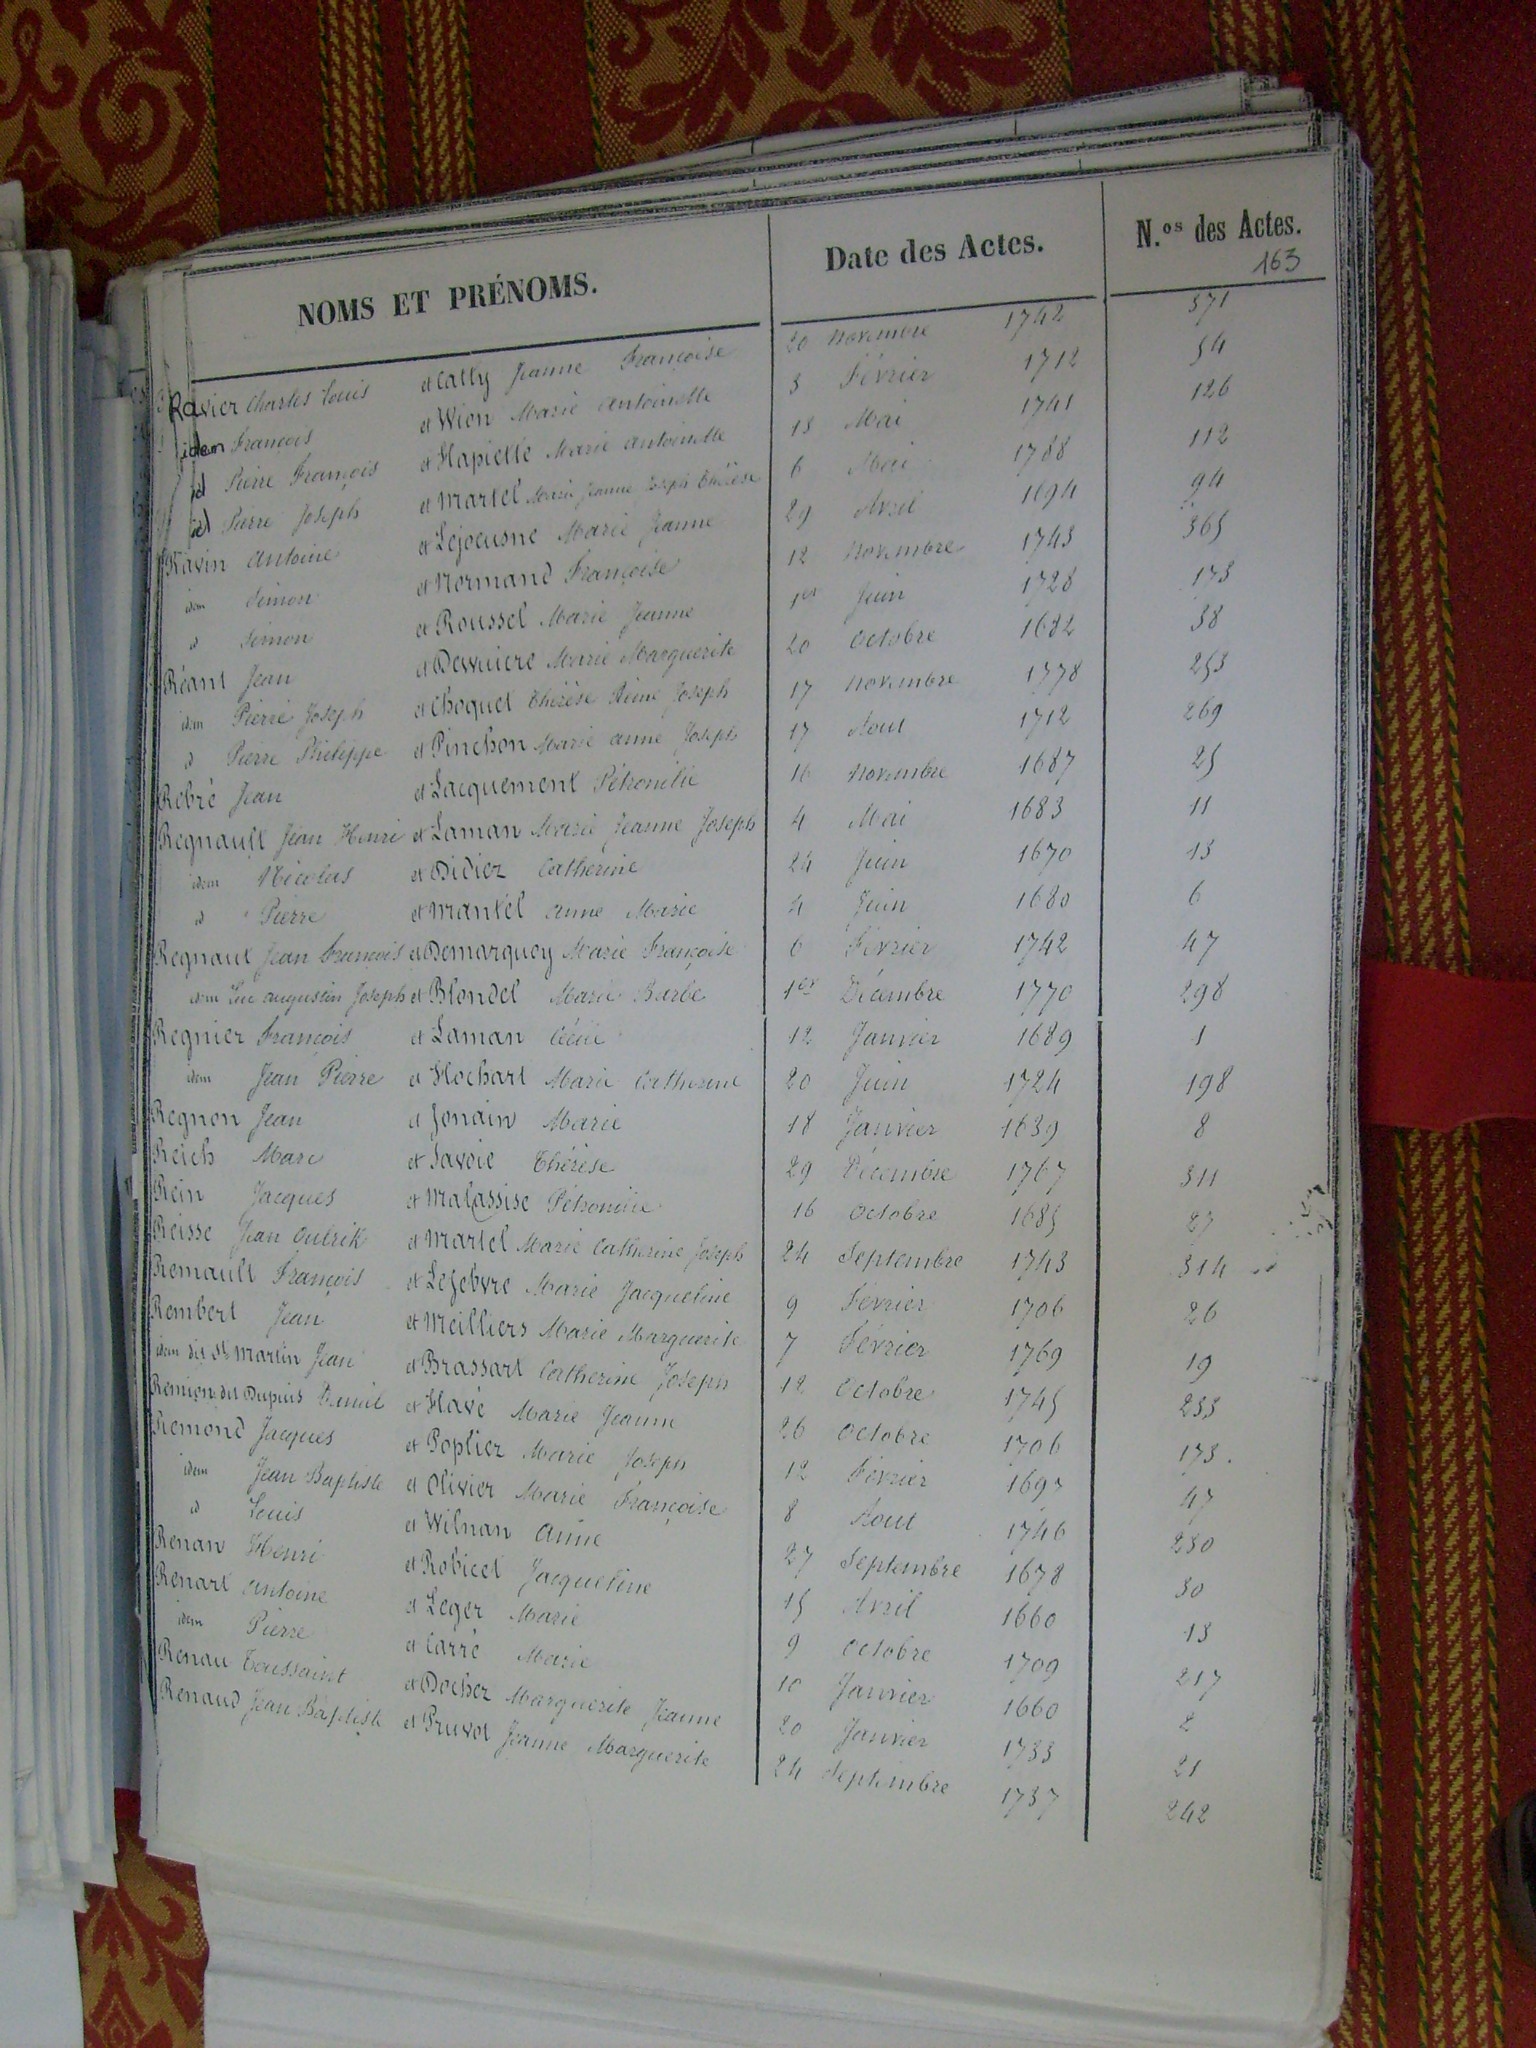 NOMS ET PRÉNOMS. Date des Actes. N.os des Actes.
163
Ravier Charles Louis et Cally Jeanne Françoise 20 Novembre 1742 371
idem François et Wion Marie Antoinette 3 Février 1712 54
id Pierre François et Hapiette Marie Antoinette 13 Mai 1741 126
id Pierre Joseph et Martel Marie Jeanne Joseph Thérèse 6 Mai 1788 112
Ravin Antoine et Lejocusne Marie Jeanne 29 Avril 1694 94
idem Simon et Normand Françoise 12 Novembre 1743 365
d Simon et Roussel Marie Jeanne 1er Juin 1728 173
Réant Jean et Marie Marguerite 20 Octobre 1682 38
idem Pierre Joseph et Choquet Thérèse Reine Joseph 17 Novembre 1778 253
d Pierre Philippe et Pinchon Marie Anne Joseph 17 Aout 1712 269
Rebré Jean et Lacquement Pétronille 16 Novembre 1687 25
Regnault Jean Henri et Laman Marie Jeanne Joseph 4 Mai 1683 11
idem Nicolas et Didiez Catherine 24 Juin 1670 13
d Pierre et Mantel Anne Marie 4 Juin 1680 6
Regnaut Jean François et Demarquoy Marie Françoise 6 Février 1742 47
idem Luc Augustin Joseph et Blondel Marie Barbe 1er Décembre 1770 298
Regnier François et Laman Cécile 12 Janvier 1689 1
idem Jean Pierre et Hochart Marie Catherine 20 Juin 1724 198
Regnon Jean et Jonain Marie 18 Janvier 1639 8
Reich Marc et Savoie Thérèse 29 Décembre 1767 311
Rein Jacques et Malassise Pétronille 16 Octobre 1685 27
Reisse Jean Oulrik et Martel Marie Catherine Joseph 24 Septembre 1743 314
Remault François et Lefebvre Marie Jacqueline 9 Février 1706 26
Rembert Jean et Meilliers Marie Marguerite 7 Février 1769 19
idem dit St Martin Jean et Brassart Catherine Joseph 12 Octobre 1745 233
Remion dit Dupuis Daniel et Havé Marie Jeanne 26 Octobre 1706 173.
Remond Jacques et Poplier Marie Joseph 12 Février 1697 47
idem Jean Baptiste et Olivier Marie Françoise 8 Aout 1746 230
d Louis et Wilnan Anne 27 Septembre 1678 30
Renan Henri et Robicet Jacqueline 15 Avril 1660 13
Renart Antoine et Leger Marie 9 Octobre 1709 217
idem Pierre et Carré Marie 10 Janvier 1660 2
Renau Toussaint et Docher Marguerite Jeanne 20 Janvier 1733 21
Renaud Jean Baptiste et Pruvot Jeanne Marguerite 24 Septembre 1737 242